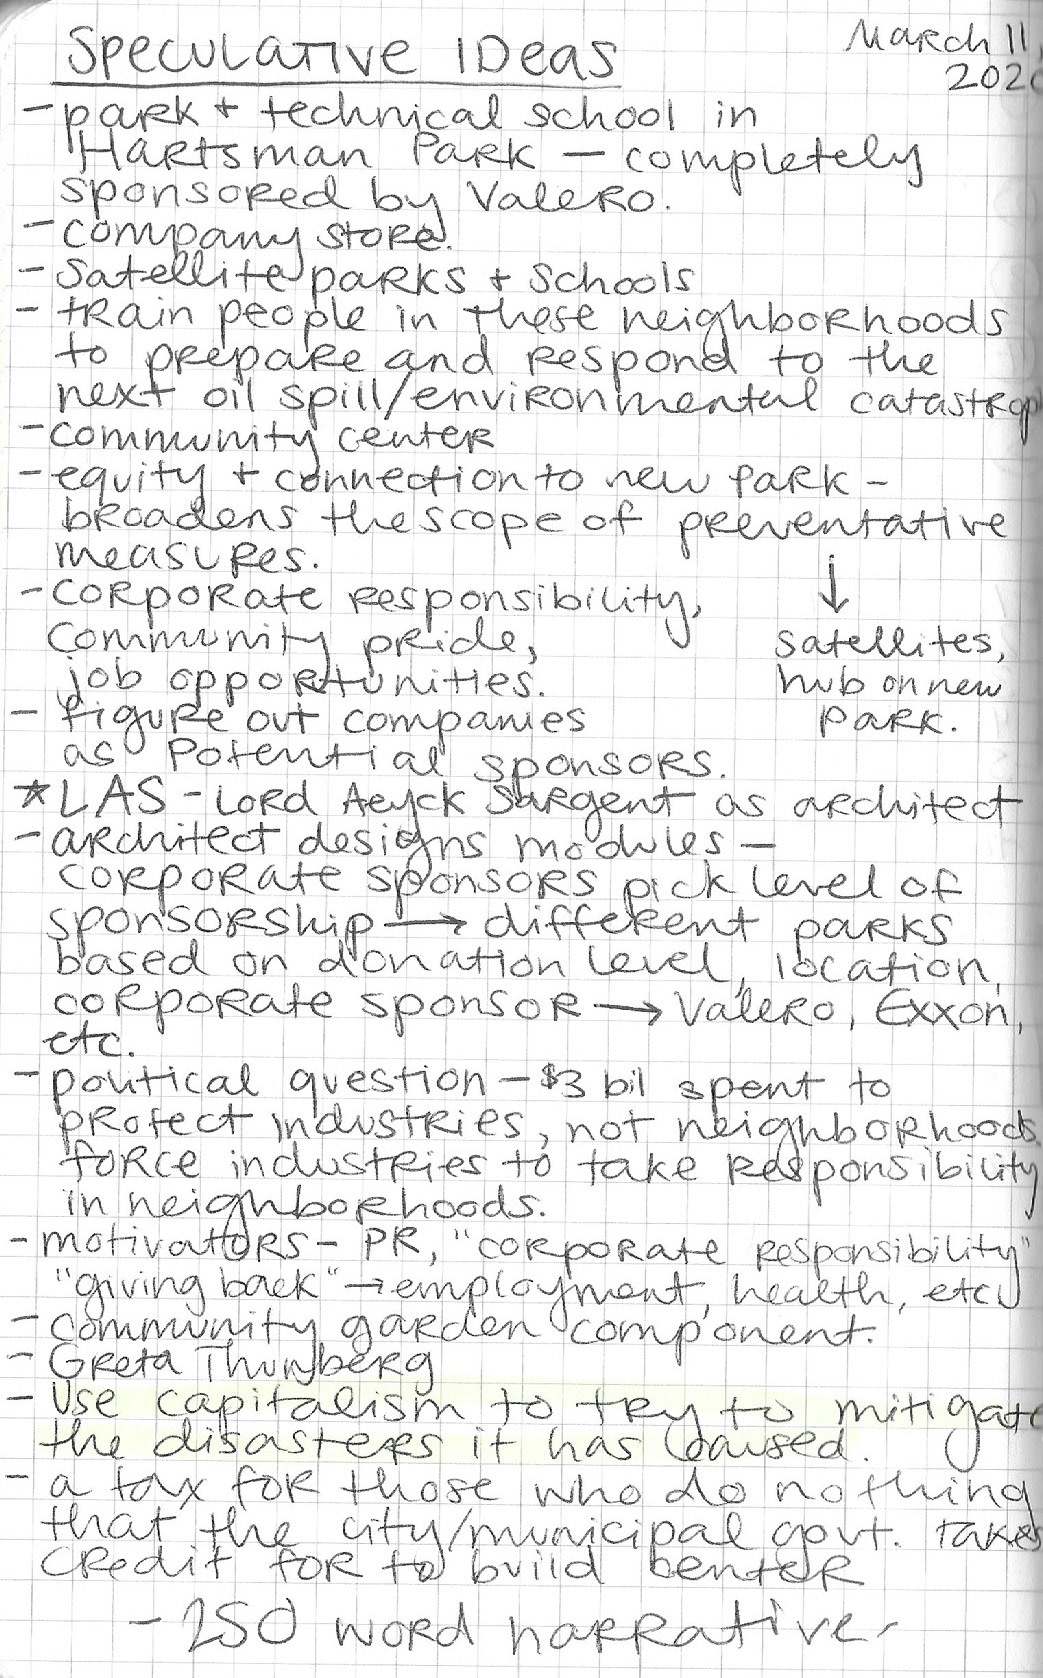 Speculative Ideas
March 11,
202
- park + technical school in
Hartsman Park - completely
sponsored by Valero.
- company store.
- Satellite parks + Schools
- train people in these neighborhoods
to prepare and respond to the
next oil spill/environmental catastrop
- community center
- equity + connection to new park -
broadens the scope of preventative
measures.
↓
satellites,
hub on new
park.
- corporate responsibility,
community pride,
job opportunities.
- figure out companies
as potential sponsors.
* LAS - Lord Aeyck Sargent as architect
- architect designs modules -
corporate sponsors pick level of
sponsorship → different parks
based on donation level, location,
corporate sponsor → Valero, Exxon,
etc.
- political question - $3 bil spent to
protect industries, not neighborhoods.
force industries to take responsibility
in neighborhoods.
- motivators - PR, "corporate responsibility"
"giving back" → employment, health, etc.
- community garden component.
- Greta Thunberg
- Use capitalism to try to mitigate
the disasters it has caused.
- a tax for those who do nothing
that the city/municipal govt. takes
credit for to build
- 250 word narrative -